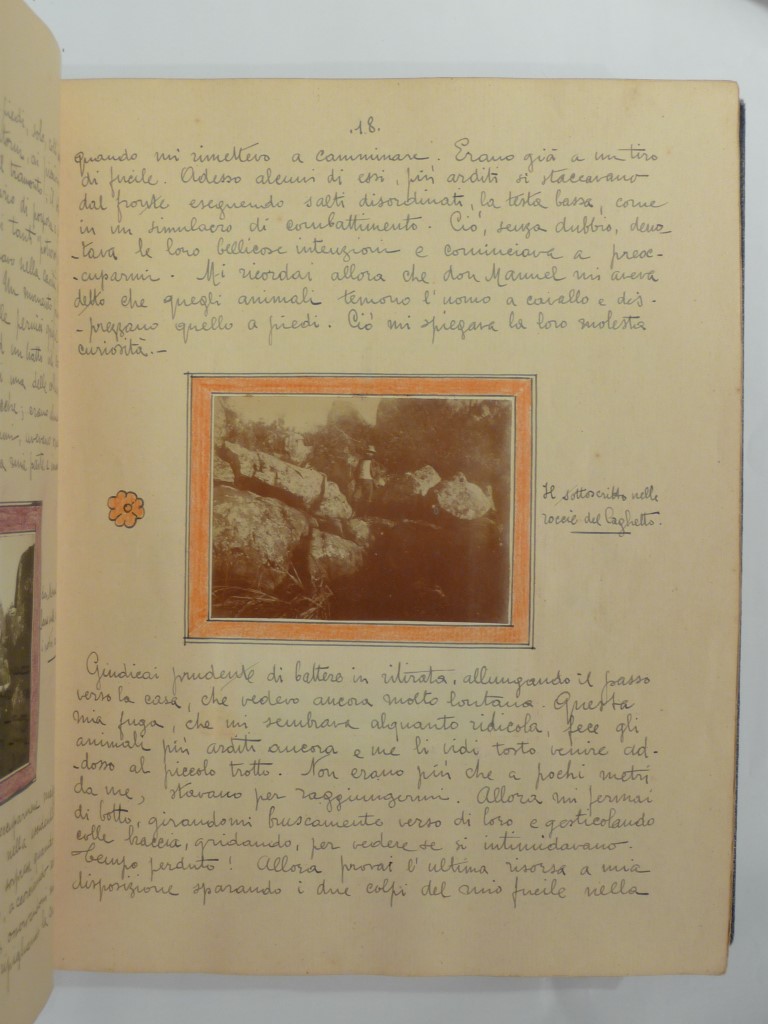 .18.
quando mi rimettevo a camminare. Erano già a un tiro
di fucile. Adesso alcuni di essi, più arditi si staccavano
dal fronte eseguendo salti disordinati, la testa bassa, come
in un simulacro di combattimento. Ciò, senza dubbio, deno-
-tava le loro bellicose intenzioni e cominciava a preoc-
-cuparmi. Mi ricordai allora che don Manuel mi aveva
detto che quegli animali temono l'uomo a cavallo e dis-
-prezzano quello a piedi. Ciò mi spiegava la loro molesta
curiosità.-
Il sottoscritto nelle
roccie del laghetto.
Giudicai prudente di battere in ritirata, allungando il passo
verso la casa, che vedevo ancora molto lontana. Questa
mia fuga, che mi sembrava alquanto ridicola, fece gli
animali più arditi ancora e me li vidi tosto venire ad-
-dosso al piccolo trotto. Non erano più che a pochi metri
da me, stavano per raggiungermi. Allora mi fermai
di botto, girandomi bruscamente verso di loro e gesticolando
colle braccia, gridando, per vedere se si intimidavano.
Tempo perduto! Allora provai l'ultima risorsa a mia
disposizione sparando i due colpi del mio fucile nella